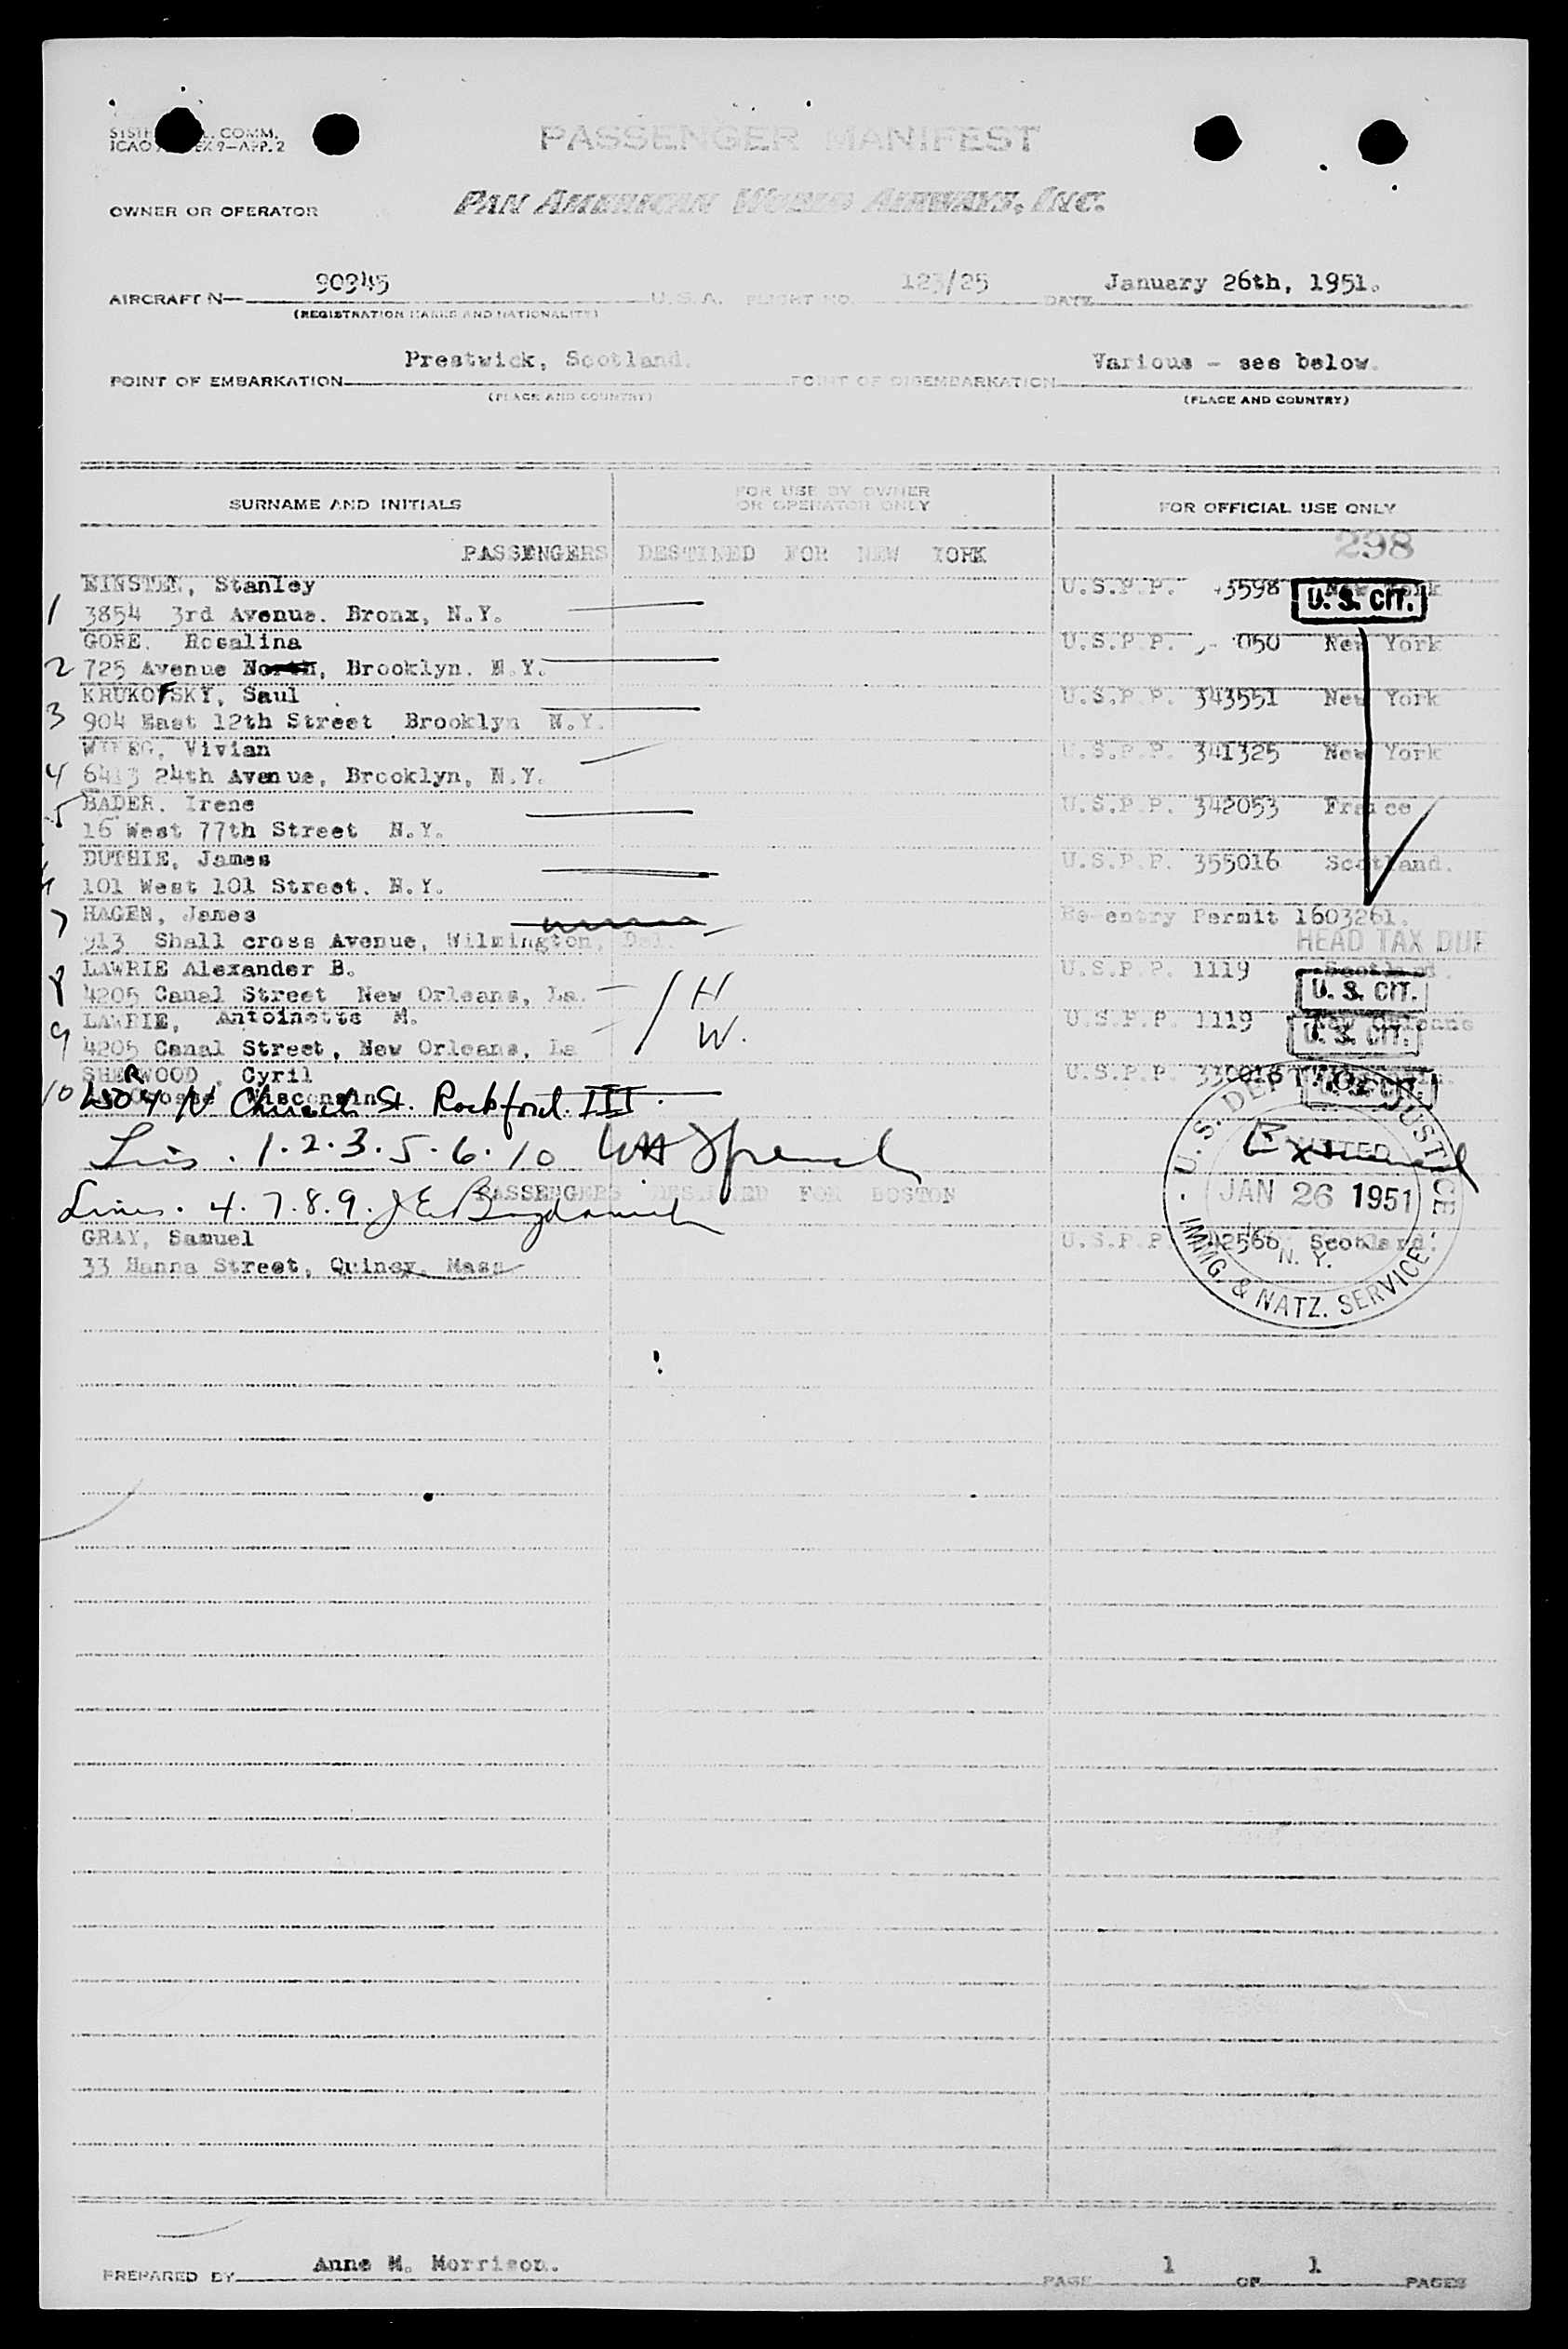 COMM.
9—APP. 2
PASSENGER MANIFEST
OWNER OR OPERATOR PAN AMERICAN WORLD AIRWAYS, INC.
AIRCRAFT N— 90945 U.S.A. FLIGHT NO. /25 DATE January 26th, 1951.
(REGISTRATION MARKS AND NATIONALITY)
POINT OF EMBARKATION Prestwick, Scotland. POINT OF DISEMBARKATION Various - see below.
(PLACE AND COUNTRY) (PLACE AND COUNTRY)
SURNAME AND INITIALS FOR USE BY OWNER OR OPERATOR ONLY FOR OFFICIAL USE ONLY
PASSENGERS DESTINED FOR NEW YORK 298
Stanley U.S.P.P. 3598 New York
1 3854 3rd Avenue. Bronx, N.Y. U. S. CIT.
GORE. Rosalina U.S.P.P. 050 New York
2 725 Avenue Brooklyn. N.Y.
KRUKOFSKY, Saul U.S.P.P. 343551 New York
3 904 East 12th Street Brooklyn N.Y.
Vivian U.S.P.P. 341325 New York
4 6413 24th Avenue, Brooklyn, N.Y.
5 BADER. Irene U.S.P.P. 342053 France
16 West 77th Street N.Y.
DUTHIE, James U.S.P.P. 355016 Scotland.
101 West 101 Street. N.Y.
7 HAGEN, James Re-entry Permit 1603261.
913 Shall cross Avenue, Wilmington, Del. HEAD TAX DUE
LAWRIE Alexander B. U.S.P.P. 1119 Scotland.
8 4205 Canal Street New Orleans, La. H U. S. CIT.
LAWRIE, Antoinette M. U.S.P.P. 1119 New Orleans
9 4205 Canal Street, New Orleans, La W. U. S. CIT.
SHERWOOD, Cyril U.S.P.P.
10 N Church St. Rockford. Ill. U. S. CIT.
1.2.3.5.6.10
PASSENGERS DESTINED FOR BOSTON
4.7.8.9.
U.S. DEPT. OF JUSTICE
ADMITTED
JAN 26 1951
N. Y.
IMMIG. & NATZ. SERVICE
GRAY, Samuel U.S.P.P. 42566 Scotland.
33 Hanna Street, Quincy, Mass
PREPARED BY Anne M. Morrison. PAGE 1 OF 1 PAGES